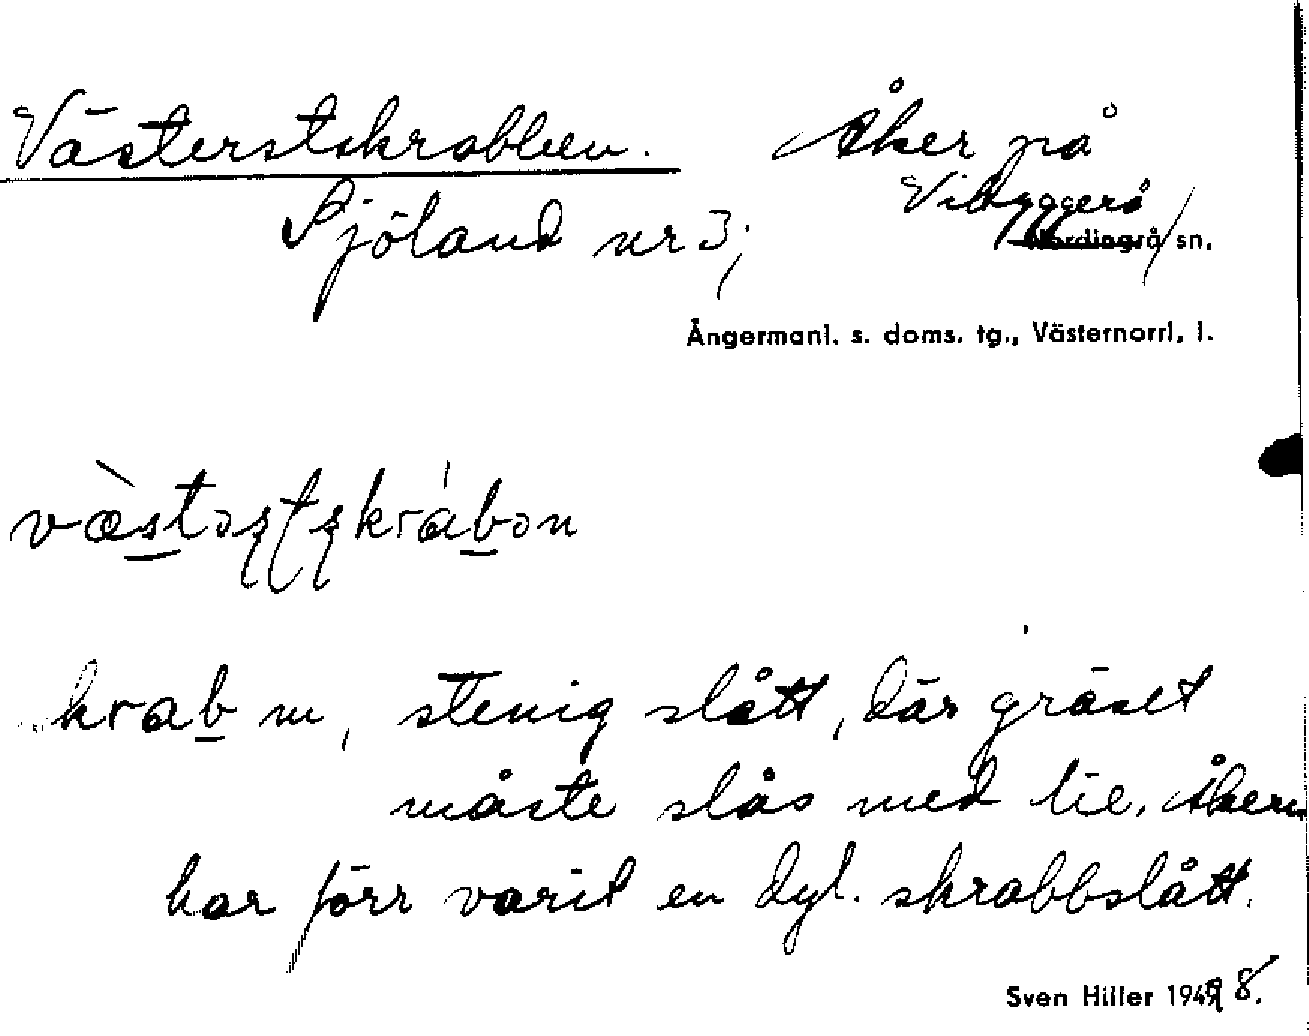 Västerstskrabben. Åker på
Sjöland nr 3, Vibyggerå
Nordingrå sn.
Ångermanl. s. doms. tg., Västernorrl. l.
væ̀stəʂʈʂkrábən
skrab m, stenig slått, där gräset
måste slås med lie. Åkern
har förr varit en dyl. skrabbslått.
Sven Hiller 1948.